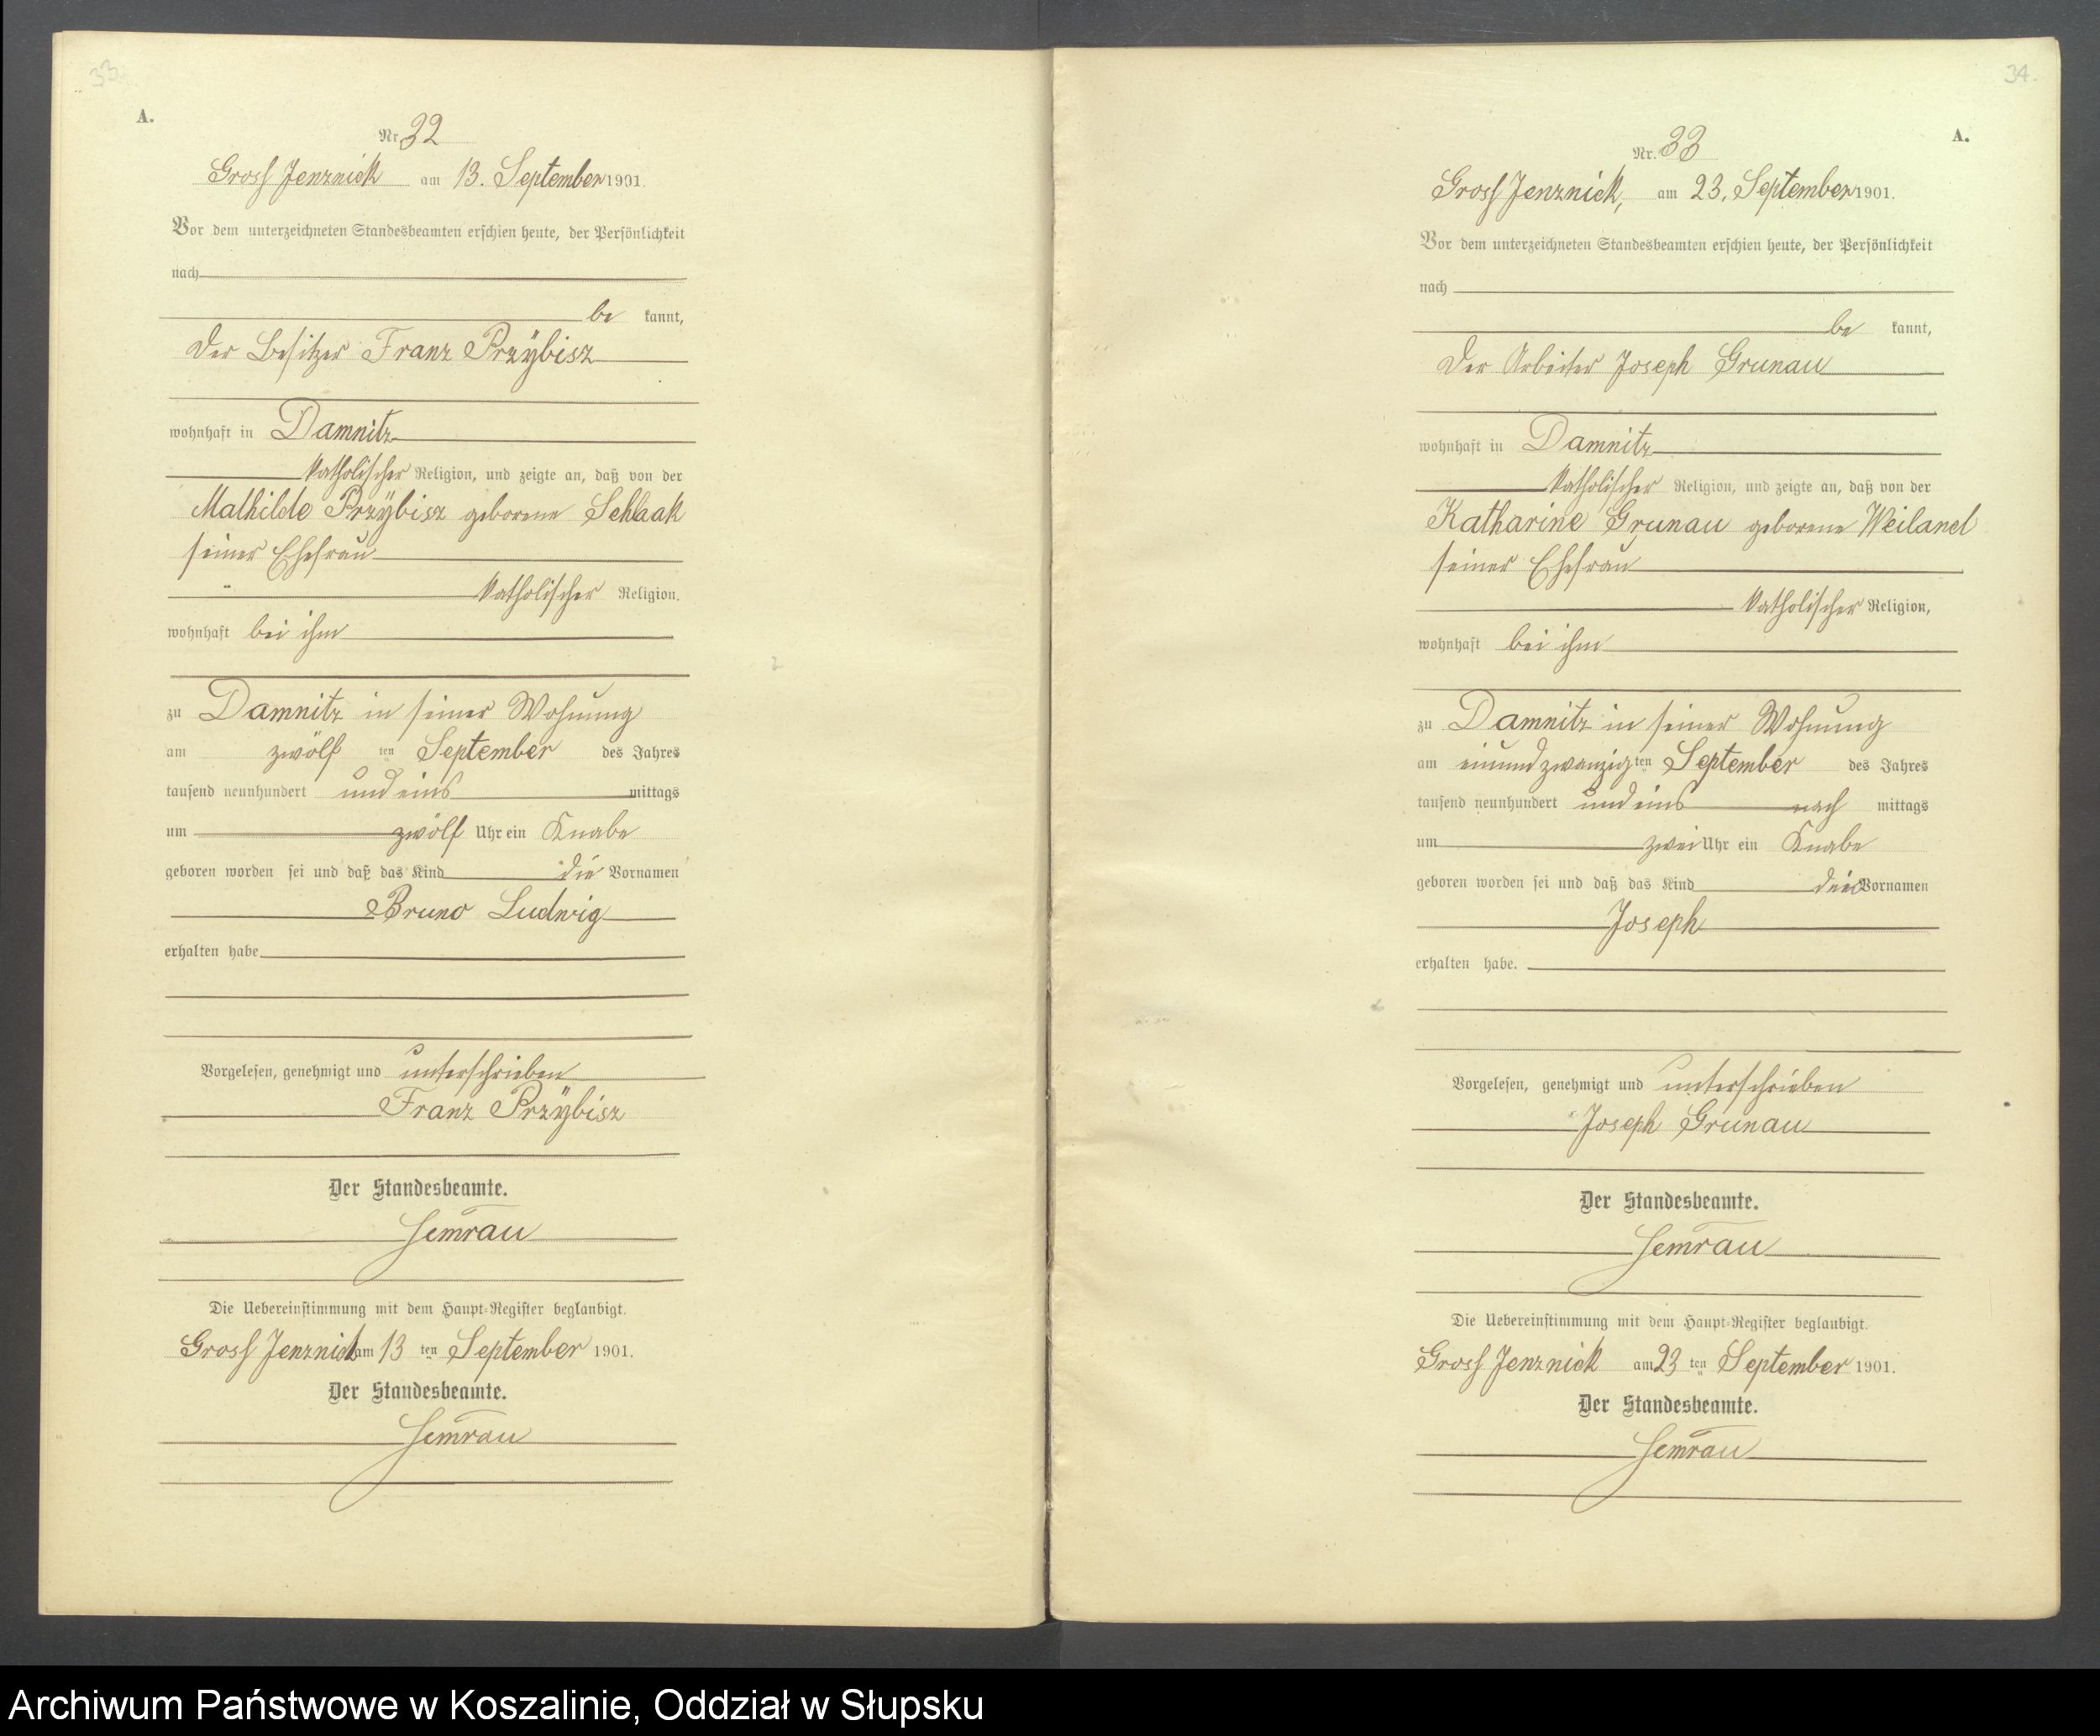 33.
A.
Nr. 32
Gross Jenznick am 13. September 1901.
Vor dem unterzeichneten Standesbeamten erschien heute, der Persönlichkeit
nach
be kannt,
der Besitzer Franz Przÿbisz
wohnhaft in Damnitz
katholischer Religion, und zeigte an, daß von der
Mathilde Przÿbisz geborene Schlaak
seiner Ehefrau
katholischer Religion.
wohnhaft bei ihm
zu Damnitz in seiner Wohnung
am zwölf ten September des Jahres
tausend neunhundert und eins mittags
um zwölf Uhr ein Knabe
geboren worden sei und daß das Kind die Vornamen
Bruno Ludwig
erhalten habe
Vorgelesen, genehmigt und unterschrieben
Franz Przÿbisz
Der Standesbeamte.
Semrau
Die Uebereinstimmung mit dem Haupt-Register beglaubigt.
Gross Jenznick am 13 ten September 1901.
Der Standesbeamte.
Semrau
34.
A.
Nr. 33
Gross Jenznick, am 23. September 1901.
Vor dem unterzeichneten Standesbeamten erschien heute, der Persönlichkeit
nach
be kannt,
der Arbeiter Joseph Grunau
wohnhaft in Damnitz
katholischer Religion, und zeigte an, daß von der
Katharine Grunau geborene Weiland
seiner Ehefrau
katholischer Religion,
wohnhaft bei ihm
zu Damnitz in seiner Wohnung
am einundzwanzig ten September des Jahres
tausend neunhundert und eins nach mittags
um zwei Uhr ein Knabe
geboren worden sei und daß das Kind den Vornamen
Joseph
erhalten habe.
Vorgelesen, genehmigt und unterschrieben
Joseph Grunau
Der Standesbeamte.
Semrau
Die Uebereinstimmung mit dem Haupt-Register beglaubigt.
Gross Jenznick am 23 ten September 1901.
Der Standesbeamte.
Semrau
Archiwum Państwowe w Koszalinie, Oddział w Słupsku